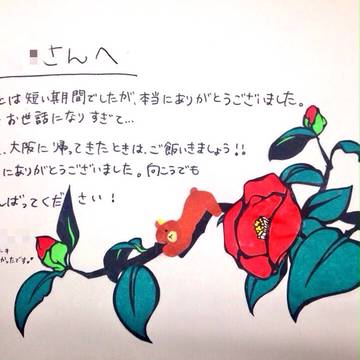 さんへ
とは短い期間でしたが、本当にありがとうございました。
お世話になりすぎて…
、大阪に帰ってきたときは、ご飯いきましょう!!
にありがとうございました。向こうでも
んばってください!
かったです。